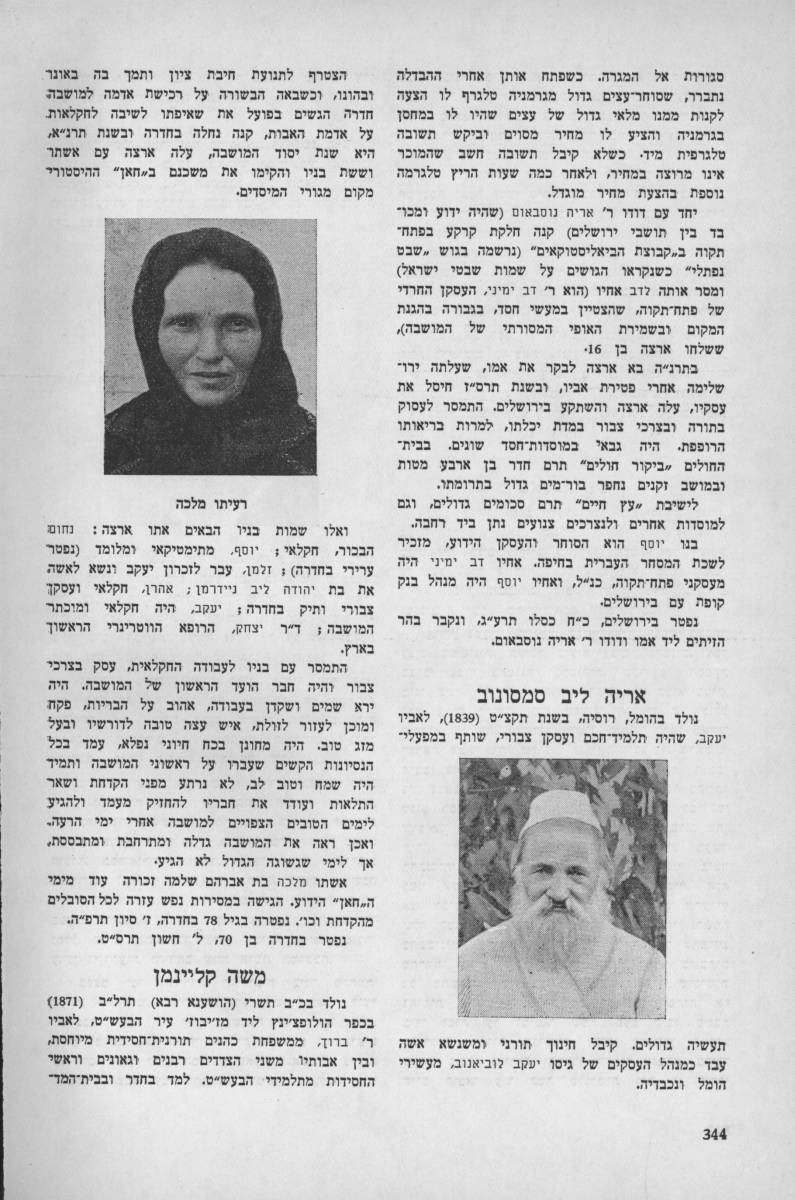 סגורות אל המגרה. כשפתח אותן אחרי ההבדלה
נתברר, שסוחר־עצים גדול מגרמניה טלגרף לו הצעה
לקנות ממנו מלאי גדול של עצים שהיו לו במחסן
בגרמניה והציע לו מחיר מסוים וביקש תשובה
טלגרפית מיד. כשלא קיבל תשובה חשב שהמוכר
אינו מרוצה במחיר, ולאחר כמה שעות הריץ טלגרמה
נוספת בהצעת מחיר מוגדל.
יחד עם דודו ר׳ אריה נוסבאום (שהיה ידוע ומכו־
בד בין תושבי ירושלים) קנה חלקת קרקע בפתח־
תקוה ב„קבוצת הביאליסטוקאים״ (נרשמה בגוש „שבט
נפתלי״ כשנקראו הגושים על שמות שבטי ישראל)
ומסר אותה לדב אחיו (הוא ר׳ דב ימיני, העסקן החרדי
של פתח־תקוה, שהצטיין במעשי חסד, בגבורה בהגנת
המקום ובשמירת האופי המסורתי של המושבה),
ששלחו ארצה בן 16.
בתרנ״ה בא ארצה לבקר את אמו, שעלתה ירו־
שלימה אחרי פטירת אביו, ובשנת תרס״ז חיסל את
עסקיו, עלה ארצה והשתקע בירושלים. התמסר לעסוק
בתורה ובצרכי צבור במדת יכלתו, למרות בריאותו
הרופפת. היה גבאי במוסדות־חסד שונים. בבית־
החולים „ביקור חולים״ תרם חדר בן ארבע מטות
ובמושב זקנים נחפר בור־מים גדול בתרומתו.
לישיבת „עץ חיים״ תרם סכומים גדולים, וגם
למוסדות אחרים ולנצרכים צנועים נתן ביד רחבה.
בנו יוסף הוא הסוחר והעסקן הידוע, מזכיר
לשכת המסחר העברית בחיפה. אחיו דב ימיני היה
מעסקני פתח־תקוה, כנ״ל, ואחיו יוסף היה מנהל בנק
קופת עם בירושלים.
נפטר בירושלים, כ״ח כסלו תרע״ג, ונקבר בהר
הזיתים ליד אמו ודודו ר׳ אריה נוסבאום.
אריה ליב סמסונוב
נולד בהומל, רוסיה, בשנת תקצ״ט (1839), לאביו
יעקב, שהיה תלמיד־חכם ועסקן צבורי, שותף במפעלי־
תעשיה גדולים. קיבל חינוך תורני ומשנשא אשה
עבד כמנהל העסקים של גיסו יעקב לוביאנוב, מעשירי
הומל ונכבדיה.
הצטרף לתנועת חיבת ציון ותמך בה באונו
ובהונו, וכשבאה הבשורה על רכישת אדמה למושבה
חדרה הגשים בפועל את שאיפתו לשיבה לחקלאות
על אדמת האבות, קנה נחלה בחדרה ובשנת תרנ״א,
היא שנת יסוד המושבה, עלה ארצה עם אשתו
וששת בניו והקימו את משכנם ב„חאן״ ההיסטורי־
מקום מגורי המיסדים.
רעיתו מלכה
ואלו שמות בניו הבאים אתו ארצה: נחום
הבכור, חקלאי; יוסף, מתימטיקאי ומלומד (נפטר
ערירי בחדרה); זלמן, עבר לזכרון יעקב ונשא לאשה
את בת יהודה ליב ניידרמן; אהרן, חקלאי ועסקן
צבורי ותיק בחדרה; יעקב, היה חקלאי ומוכתר
המושבה; ד״ר יצחק, הרופא הווטרינרי הראשון
בארץ.
התמסר עם בניו לעבודה החקלאית, עסק בצרכי
צבור והיה חבר הועד הראשון של המושבה. היה
ירא שמים ושקדן בעבודה, אהוב על הבריות, פקח
ומוכן לעזור לזולת, איש עצה טובה לדורשיו ובעל
מזג טוב. היה מחונן בכח חיוני נפלא, עמד בכל
הנסיונות הקשים שעברו על ראשוני המושבה ותמיד
היה שמח וטוב לב, לא נרתע מפני הקדחת ושאר
התלאות ועודד את חבריו להחזיק מעמד ולהגיע
לימים הטובים הצפויים למושבה אחרי ימי הרעה.
ואכן ראה את המושבה גדלה ומתרחבת ומתבססת,
אך לימי שגשוגה הגדול לא הגיע.
אשתו מלכה בת אברהם שלמה זכורה עוד מימי
ה„חאן״ הידוע. הגישה במסירות נפש עזרה לכל הסובלים
מהקדחת וכו׳. נפטרה בגיל 78 בחדרה, ז׳ סיון תרפ״ה.
נפטר בחדרה בן 70, ל׳ חשון תרס״ט.
משה קליינמן
נולד בכ״ב תשרי (הושענא רבא) תרל״ב (1871)
בכפר הולופצ׳ינץ ליד מז׳יבוז׳ עיר הבעש״ט, לאביו
ר׳ ברוך, ממשפחת כהנים תורנית־חסידית מיוחסת,
ובין אבותיו משני הצדדים רבנים וגאונים וראשי
החסידות מתלמידי הבעש״ט. למד בחדר ובבית־המד־
344